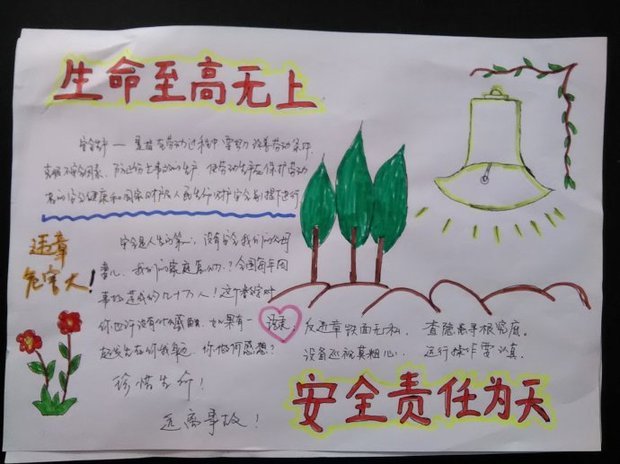 生命至高无上
安全生产——是指在劳动过程中要努力改善劳动条件,
克服不安全因素,防止伤亡事故的生产,使劳动生产在保护劳动
者的安全健康和国家财产及人民生命财产安全的前提下进行
违章
危害大!
安全是人生的第一,没有安全我们的父母
妻儿,我们的家庭怎么办?全国每年因
事故造成的几十万人!这个数字对
你也许没有什么感触,如果有一
起发生在你我身边,你做何感想?
珍惜生命!
远离事故!
反违章铁面无私,查隐患寻根究底。
设备巡视莫粗心,运行操作要认真。
安全责任为天